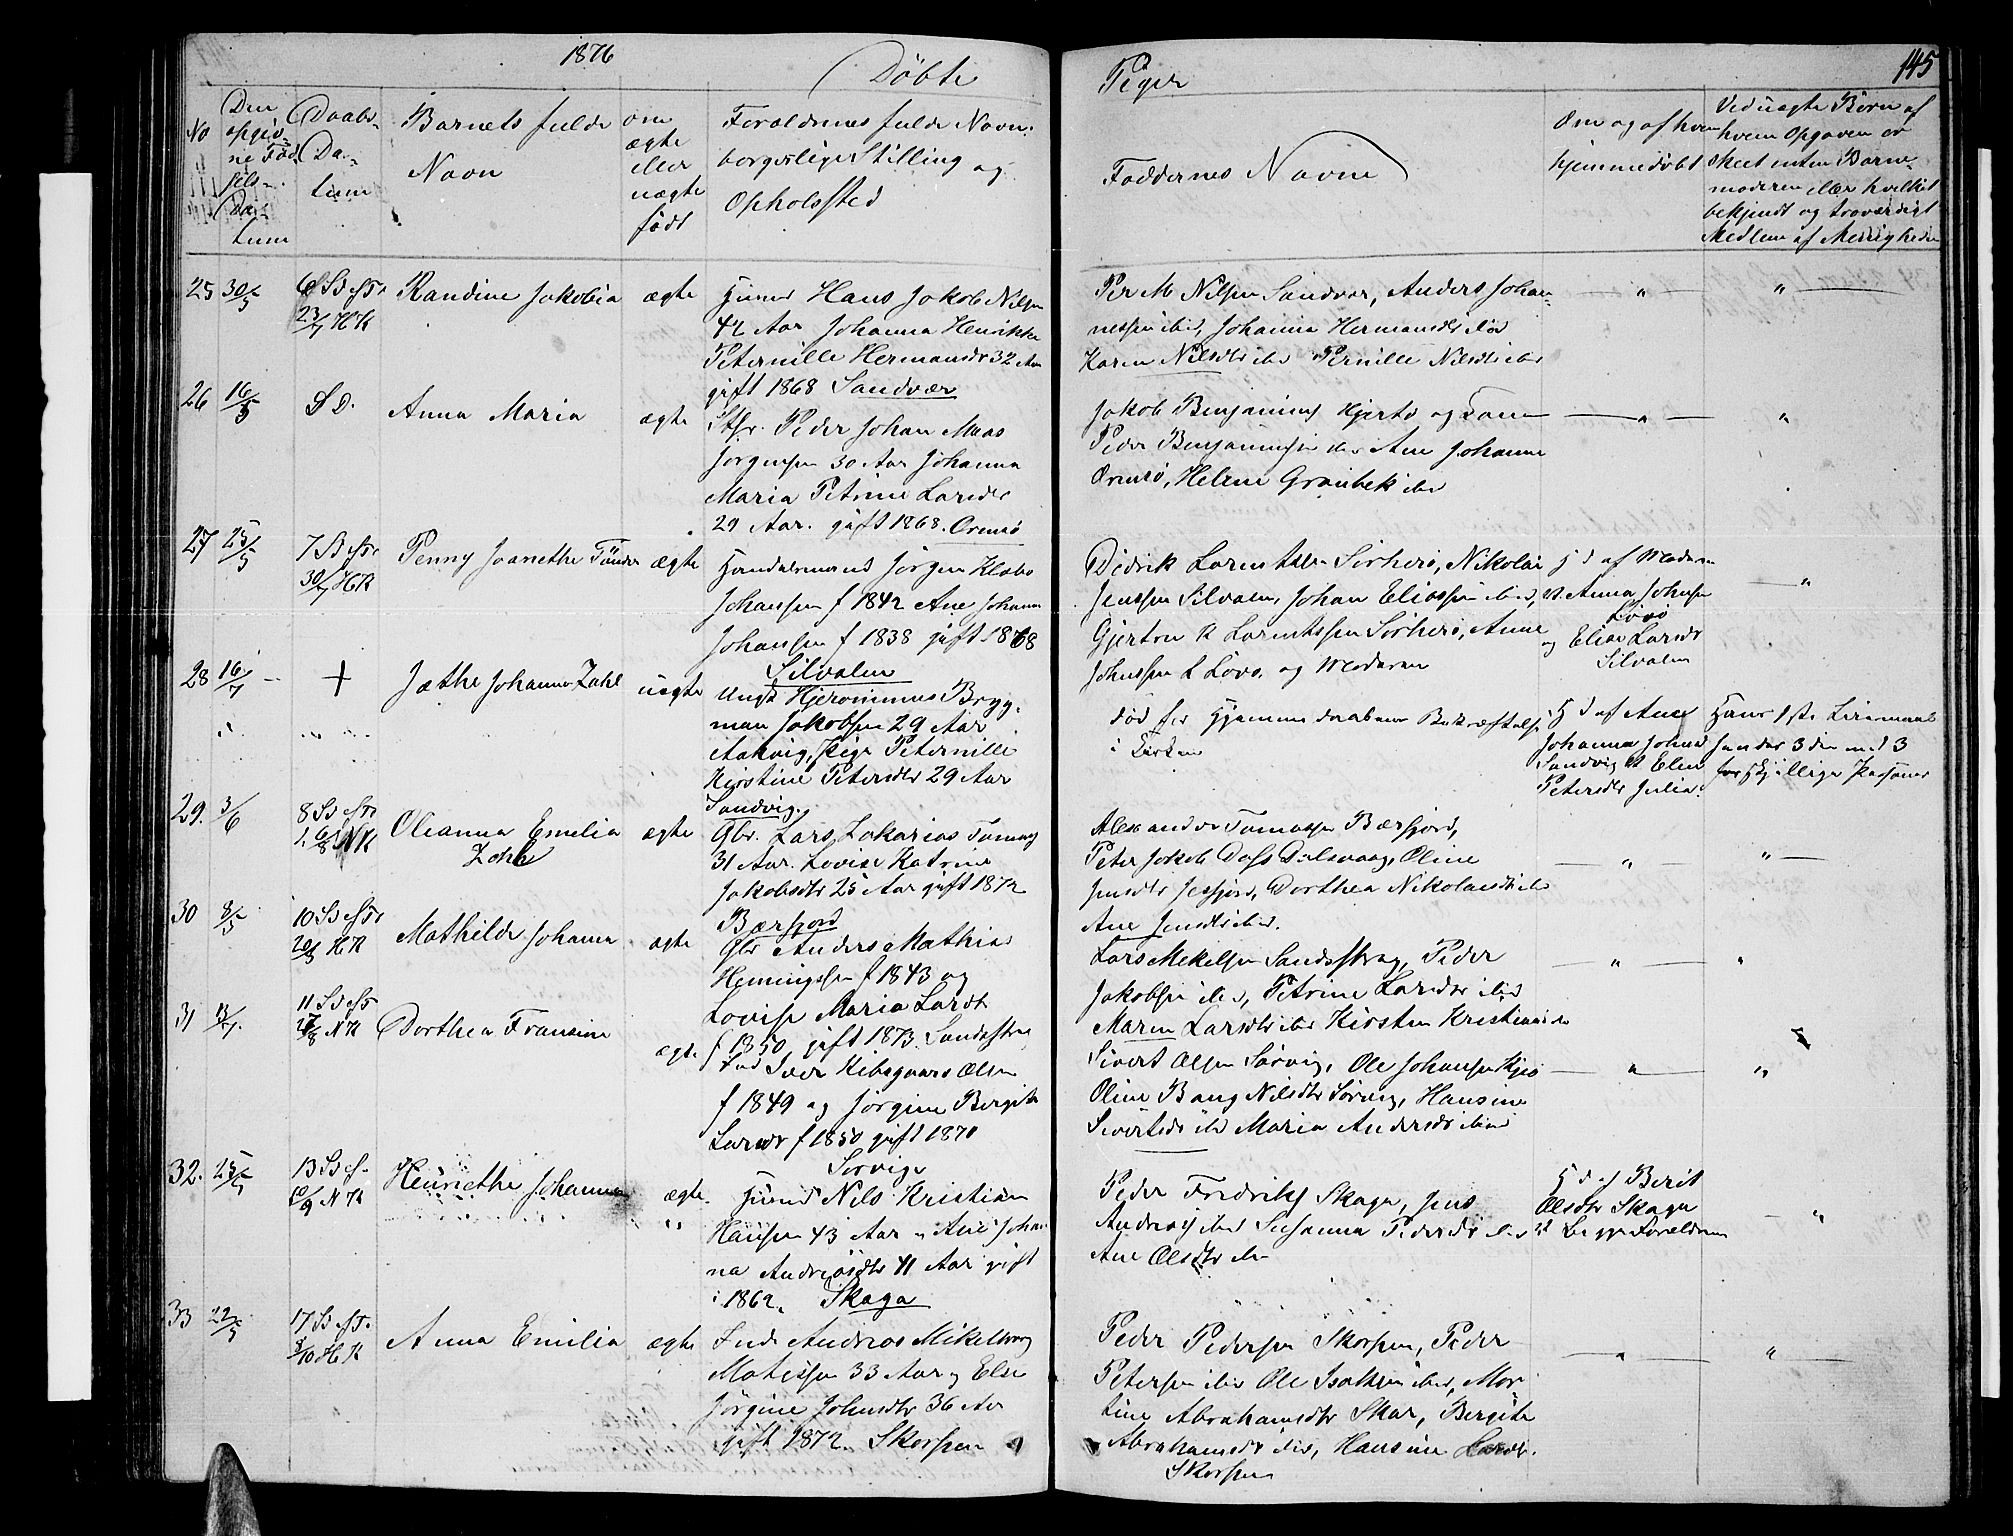 1876
Døbte
Piger
145
No
Den opgiv-
ne Fød
sels-
Da-
tum
Daabs-
Da-
tum
Barnets fulde
Navn
om
ægte
eller
uægte
født
Foraldrenes fulde Navn,
borgerlige Stilling og
Opholssted
Faddernes Navne
Om og af hvem
hjemmedøbt
Ved uægte Børn af
hvem Opgaven er
skeet enten Barne-
moderen eller hvilket
bekjendt og troværdigt
Medlem af Menigheden
25 30/5 23/7 HK Randine Jakobia ægte
Huusm Hans Jakob Nilsen
42 Aar Johanna Henrikka
Peternille Hermansdr 32 Aar
gift 1868 Sandvær
Per M Nilsen Sandvær, Anders Johan-
nessen ibid, Johanna Hermansdtr ibid
Karen Nilsdtr ibd Pernille Nilsdtr ibd
26 16/5 S D. Anna Maria ægte
Str. Peder Johan Maas
Jørgensen 30 Aar Johanna
Maria Petrine Larsdr
29 Aar. gift 1868. Ormsø
Jakob Benjamins Hjertø og Kone
Peder Benjaminsen ibd Ane Johanna
Ormsø, Helene Grønbek ibd
27 25/5 30/7 HK Penny Joanethe Tønder ægte
Handelsmand Jørgen Klæbo
Johansen f 1842 Ane Johanna
Johansen f 1838 gift 1868
Silvalen
Didrik Lorentzen Sørherø, Nikolai
Jenssen Silvalen, Johan Eliassen ibid,
Gjertru A Lorentssen Sørherø, Anne
Johnssen L Løvø. og Moderen
H d af Moderen
vt Anna Johnsen
Løvø
og Elise Larsdr
Silvalen
28 16/7 + Jæthe Johanna Zahl uægte
Ungk Hjeronimus Bryg-
man Jakobsen 29 Aar
Aakvig, Pige Peternille
Kirstine Petersdtr 29 Aar
Sandvig.
død før Hjemmedaabens Bekræftelse
i Kirken
H d af Ane
Johanna Johns
Sandvig vt Elen
Petersdtr Julia.
Hans 1ste Leiermaal
hendes 3die med 3
forskjellige Personer
29. 3/6 6/8 NK Oleanna Emelia
Zahl ægte
Gbr. Lars Zakarias Tomas
31 Aar. Lovise Katrine
Jakobsdtr 25 Aar gift 1872
Bærfjord
Alexander Tomassen Bærfjord,
Peter Jakob Dass Dalsvaag, Oline
Jensdtr Leifjord, Dorthea Nikolaisdtr ibd
Ane Jensdtr ibid.
30 8/5 20/8 HK Mathilde Johanna ægte
Gbr Anders Mathias
Hemingsen f 1843 og
Lovise Maria Larsdt
f 1850 gift 1873. Sandsstrag
Lars Mekelsen Sandsstrag, Peder
Jakobsen ibid, Petrine Larsdtr ibid
Maren Larsdtr ibid Kirsten Kristiansdr
31 27/8 NK Dorthea Fransine ægte
Ind Sver Kibsgaard Olsen
f 1849 og Jørgine Bergite
Larsdr f 1850 gift 1870
Sørvig
Sivert Olsen Sørvig, Ole Johansen Hjeø
Oline Bang Nilsdtr Sørvig, Hansine
Sivertsdr ibd Maria Andersdr ibid
32. 25/5 10/9 NK Henriethe Johanna ægte
Huusm Nils Kristian
Hansen 43 Aar og Ane Johan
na Andreasdtr 41 Aar gift
i 1862. Skaga
Peder Fredriks Skaga, Jens
Andreas ibid Susanna Pedersdr ibd
Ane Olsdtr ibd
H d af Berit
Olsdtr Skaga
vt begge Forældrene
33 22/5 8/10 HK Anna Emilia ægte
Ind. Andreas Mikelborg
Matissen 33 Aar og Else
Jørgine Johnsdtr 36 Aar
gift 1872. Skorpen
Peder Pedersen Skorpen, Peder
Petersen ibid Ole Isaksen ibid, Mar
tine Abrahamsdtr Skar, Bergite
Abrahamsdr ibid, Hansine Larsdt.
Skorpen